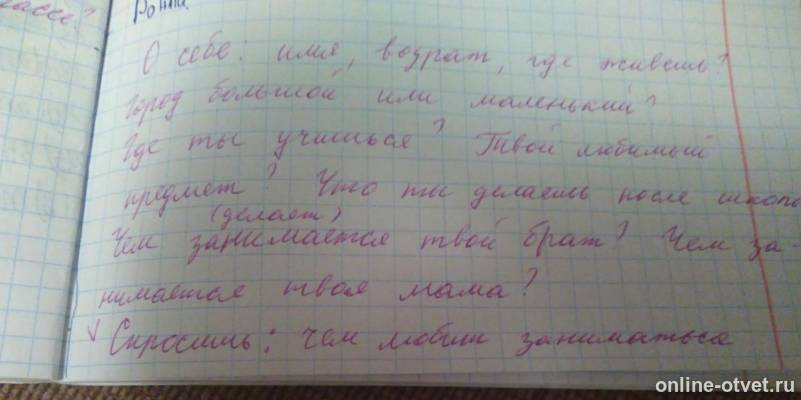 классе?
О себе: имя, возраст, где живешь?
Город большой или маленький?
Где ты учишься? Твой любимый
предмет? Что ты делаешь после школ
(делает)
Чем занимается твой брат? Чем за-
нимается твоя мама?
Спросишь: чем любит заниматься
online-otvet.ru